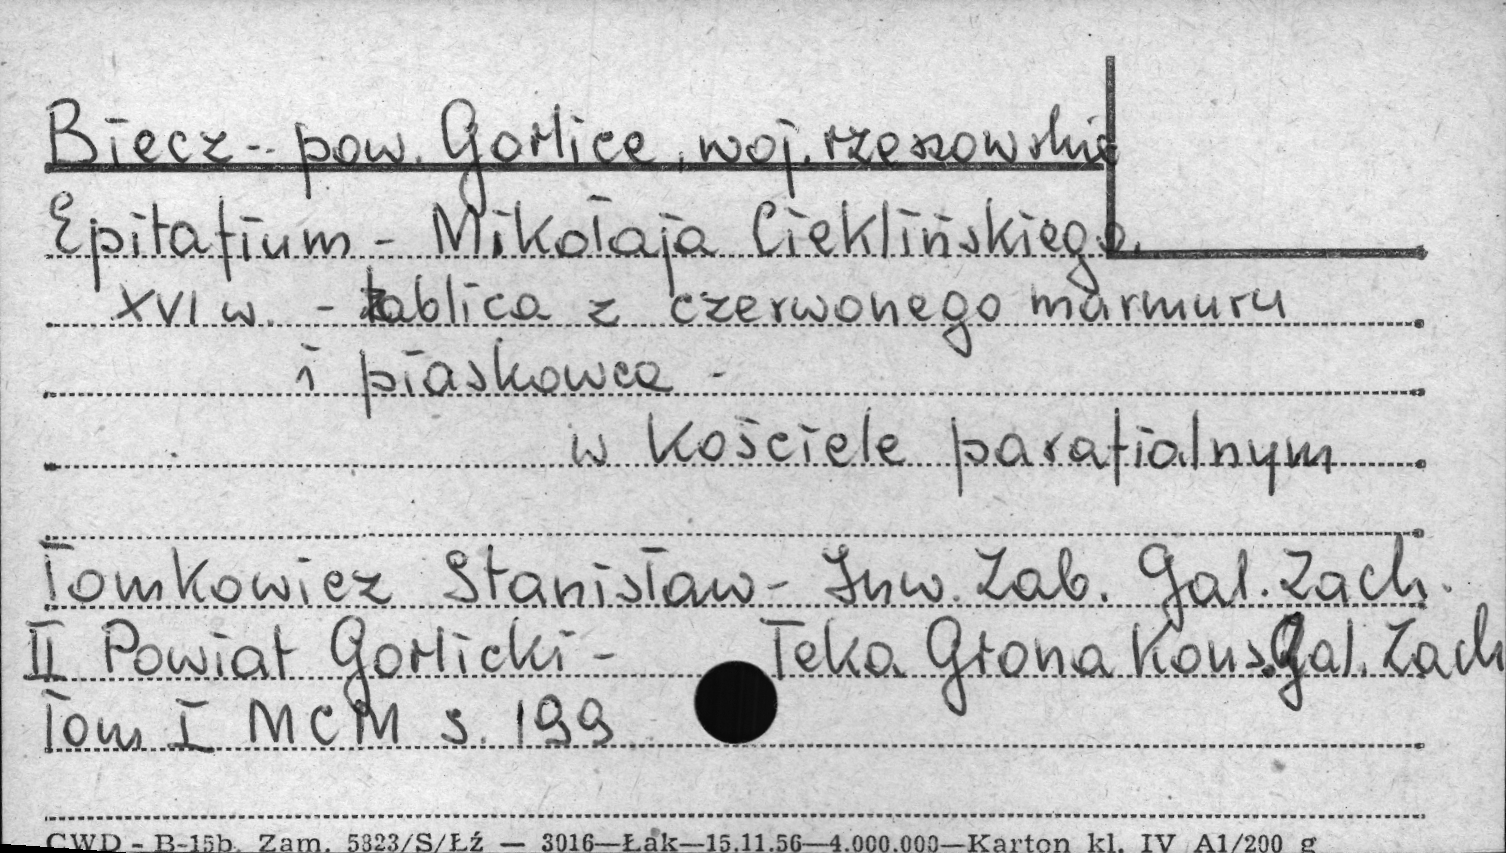 Biecz - pow. Gorlice, woj. rzeszowskie
Epitafium - Mikołaja Cieklińskiego.
XVI w. - tablica z czerwonego marmuru
i piaskowca -
w Kościele parafialnym
Tomkowicz Stanisław - Inw. Zab. Gal. Zach.
II Powiat Gorlicki - Teka Grona Kons. Gal. Zach
Tom I MCM s. 199
CWD - B-15b. Zam. 5823/S/Łź — 3016—Łak—15.11.56—4.000.000—Karton kl. IV A1/200 g